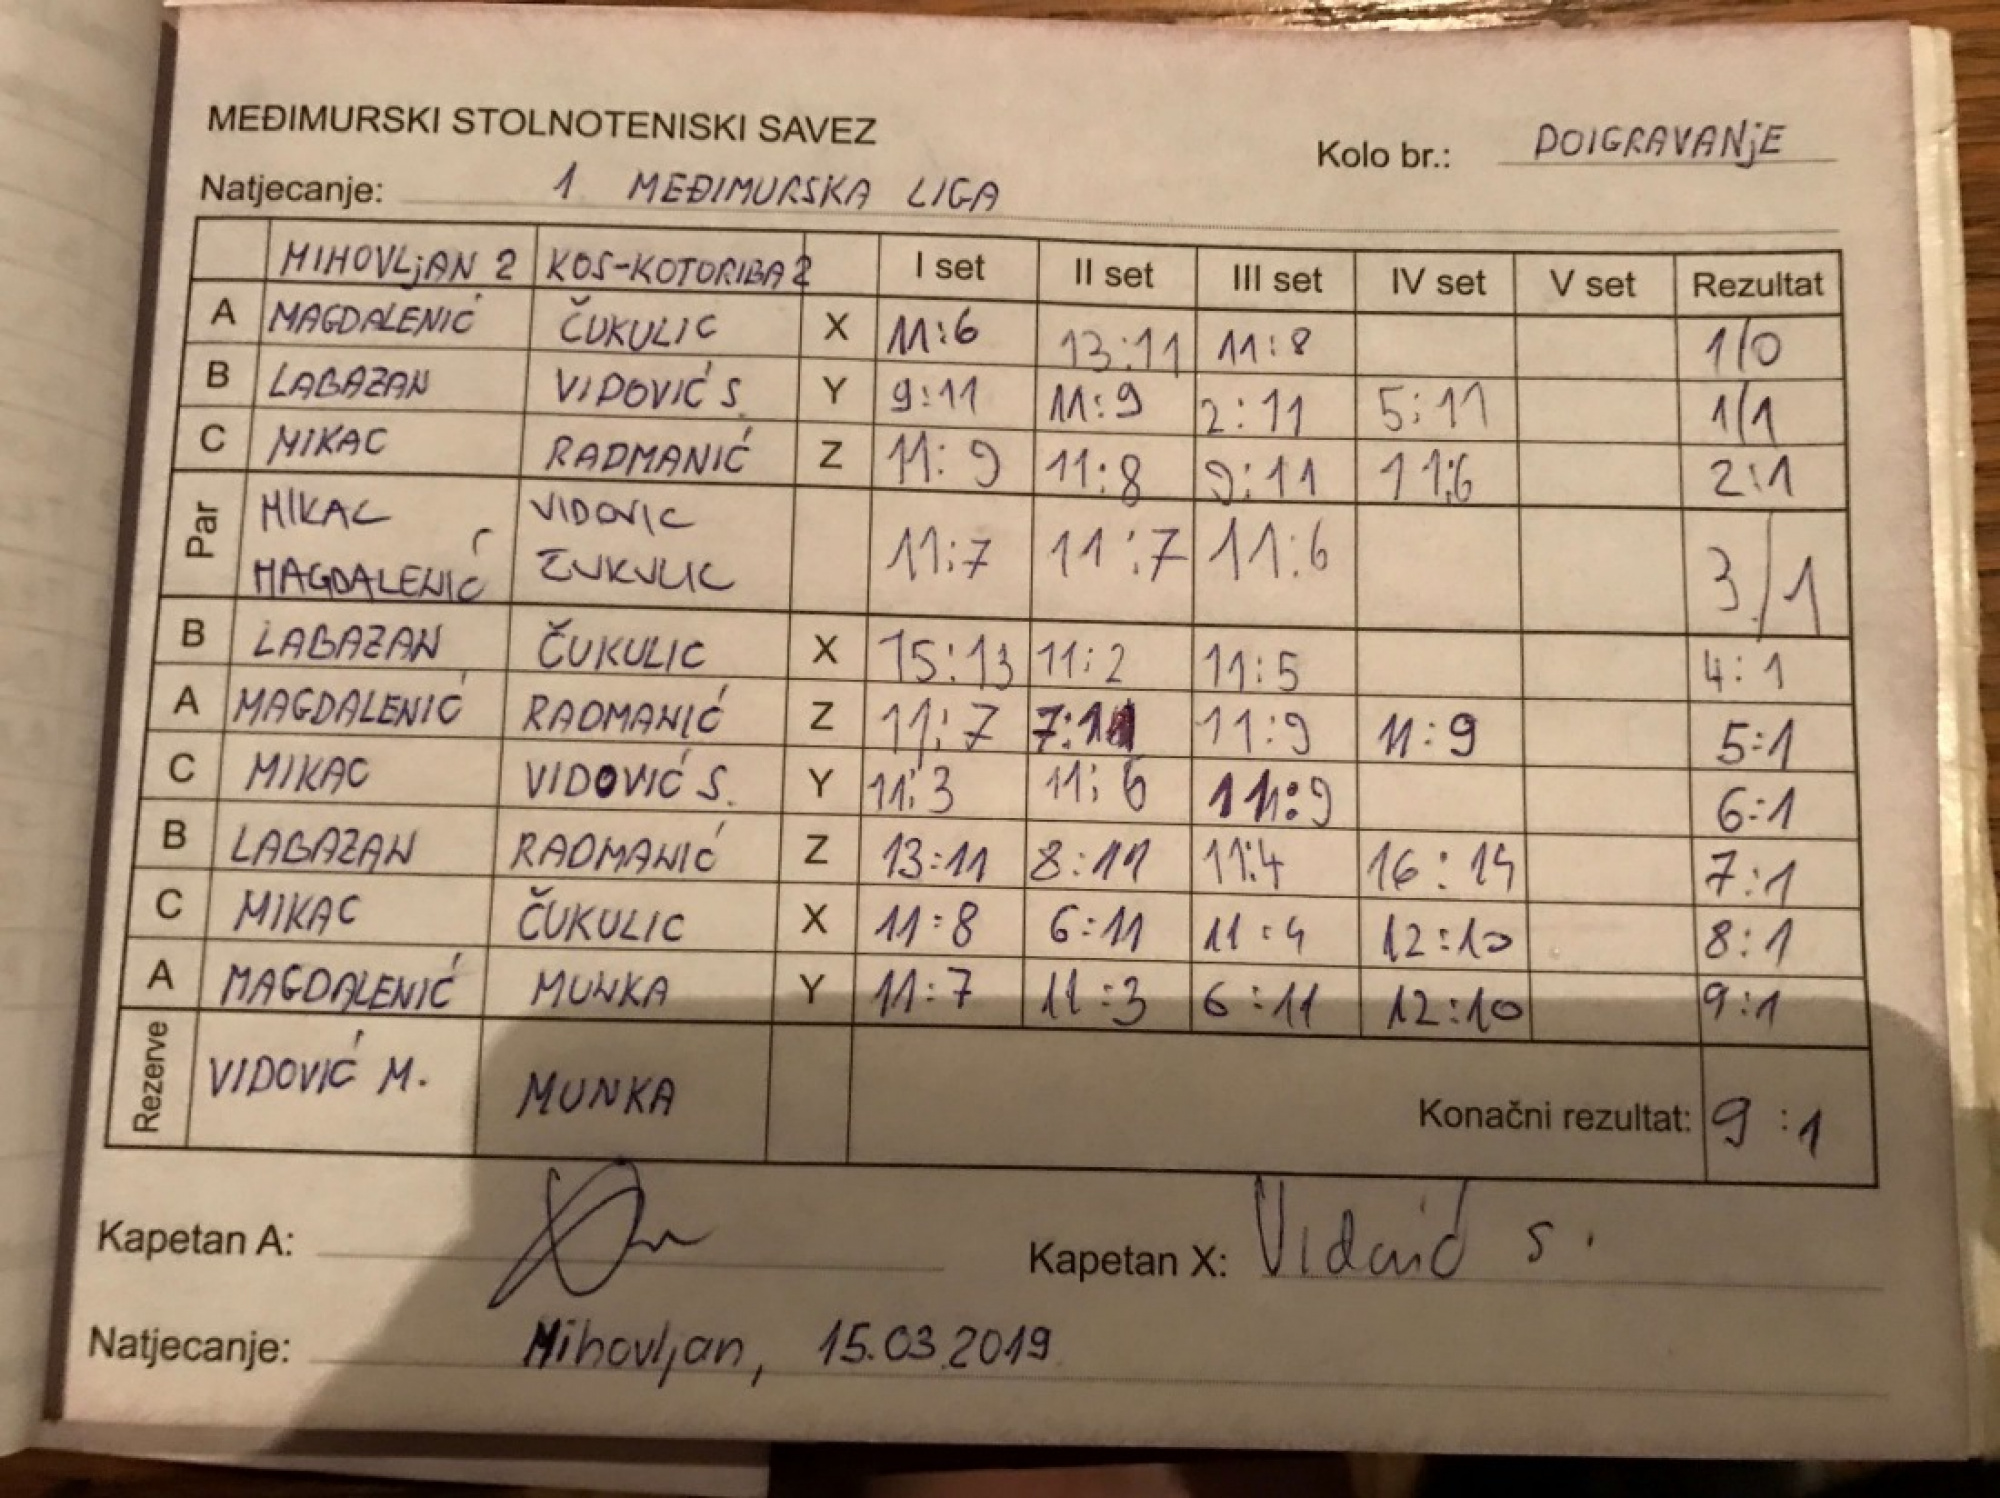 MEĐIMURSKI STOLNOTENISKI SAVEZ
Kolo br.: DOIGRAVANjE
Natjecanje: 1 MEĐIMURSKA LIGA
MIHOVLjAN 2 KOS-KOTORIBA 2 I set II set III set IV set V set Rezultat
A MAGDALENIĆ ČUKULIC X 11:6 13:11 11:8 1/0
B LABAZAN VIDOVIĆ S. Y 9:11 11:9 2:11 5:11 1/1
C MIKAC RADMANIĆ Z 11:9 11:8 9:11 11:6 2:1
Par MIKAC VIDOVIC 11:7 11:7 11:6 3/1
MAGDALENIĆ
B LABAZAN ČUKULIC X 15:13 11:2 11:5 4:1
A MAGDALENIĆ RADMANIĆ Z 11:7 7:11 11:9 11:9 5:1
C MIKAC VIDOVIĆ S. Y 11:3 11:6 11:9 6:1
B LABAZAN RADMANIĆ Z 13:11 8:11 11:4 16:14 7:1
C MIKAC ČUKULIC X 11:8 6:11 11:4 12:10 8:1
A MAGDALENIĆ MUNKA Y 11:7 11:3 6:11 12:10 9:1
Rezerve VIDOVIĆ M. MUNKA Konačni rezultat: 9:1
Kapetan A: Kapetan X: Vidović S.
Natjecanje: Mihovljan, 15.03.2019